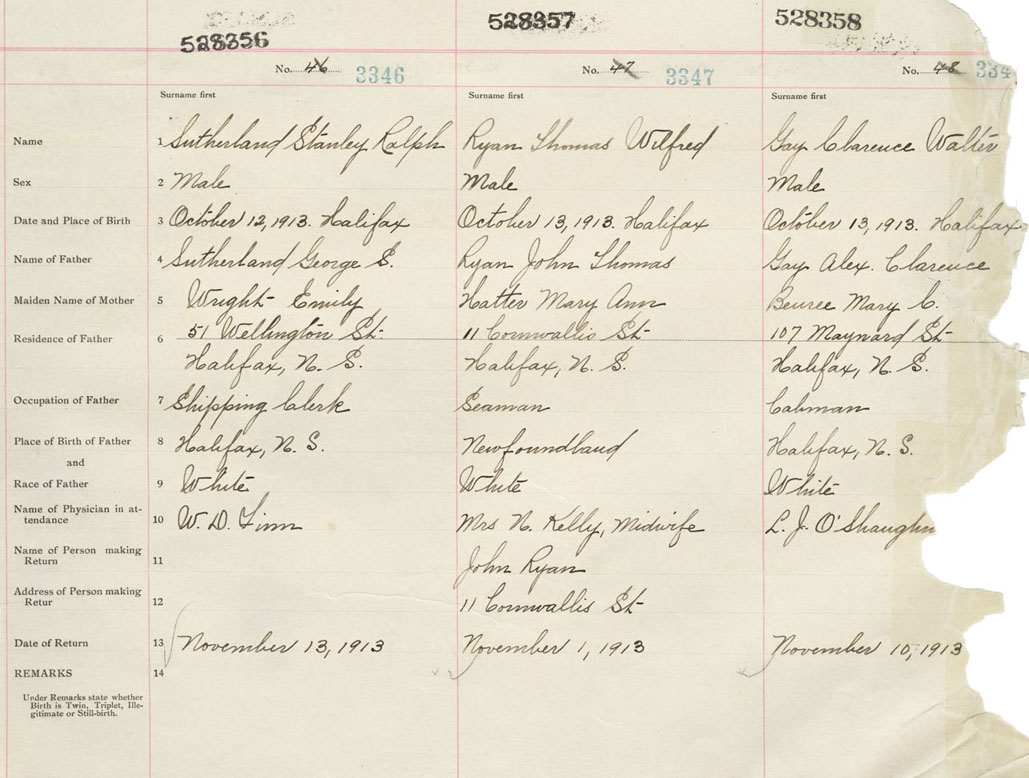 528356 528357 528358
No. 46 3346 No. 47 3347 No. 48 334
Surname first Surname first Surname first
Name 1 Sutherland Stanley Ralph Ryan Thomas Wilfred Gay Clarence Walter
Sex 2 Male Male Male
Date and Place of Birth 3 October 12, 1913. Halifax October 13, 1913. Halifax October 13, 1913. Halifax
Name of Father 4 Sutherland George S. Ryan John Thomas Gay Alex. Clarence
Maiden Name of Mother 5 Wright Emily Hatter Mary Ann Beuree Mary C.
Residence of Father 6 51 Wellington St. 11 Cornwallis St 107 Maynard St
Halifax, N. S. Halifax, N. S. Halifax, N. S.
Occupation of Father 7 Shipping Clerk Seaman Cabman
Place of Birth of Father 8 Halifax, N. S. Newfoundland Halifax, N. S.
and
Race of Father 9 White White White
Name of Physician in at-
tendance 10 W. D. Finn Mrs N. Kelly, Midwife L. J. O'Shaughn
Name of Person making
Return 11 John Ryan
Address of Person making
Retur 12 11 Cornwallis St
Date of Return 13 November 13, 1913 November 1, 1913 November 10, 1913
REMARKS 14
Under Remarks state whether
Birth is Twin, Triplet, Ille-
gitimate or Still-birth.